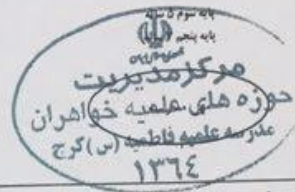 پایه سوم ۵ ساله
پایه پنجم
مرکز مدیریت
حوزه های علمیه خواهران
مدرسه علمیه فاطمیه (س) کرج
۱۳۶۴